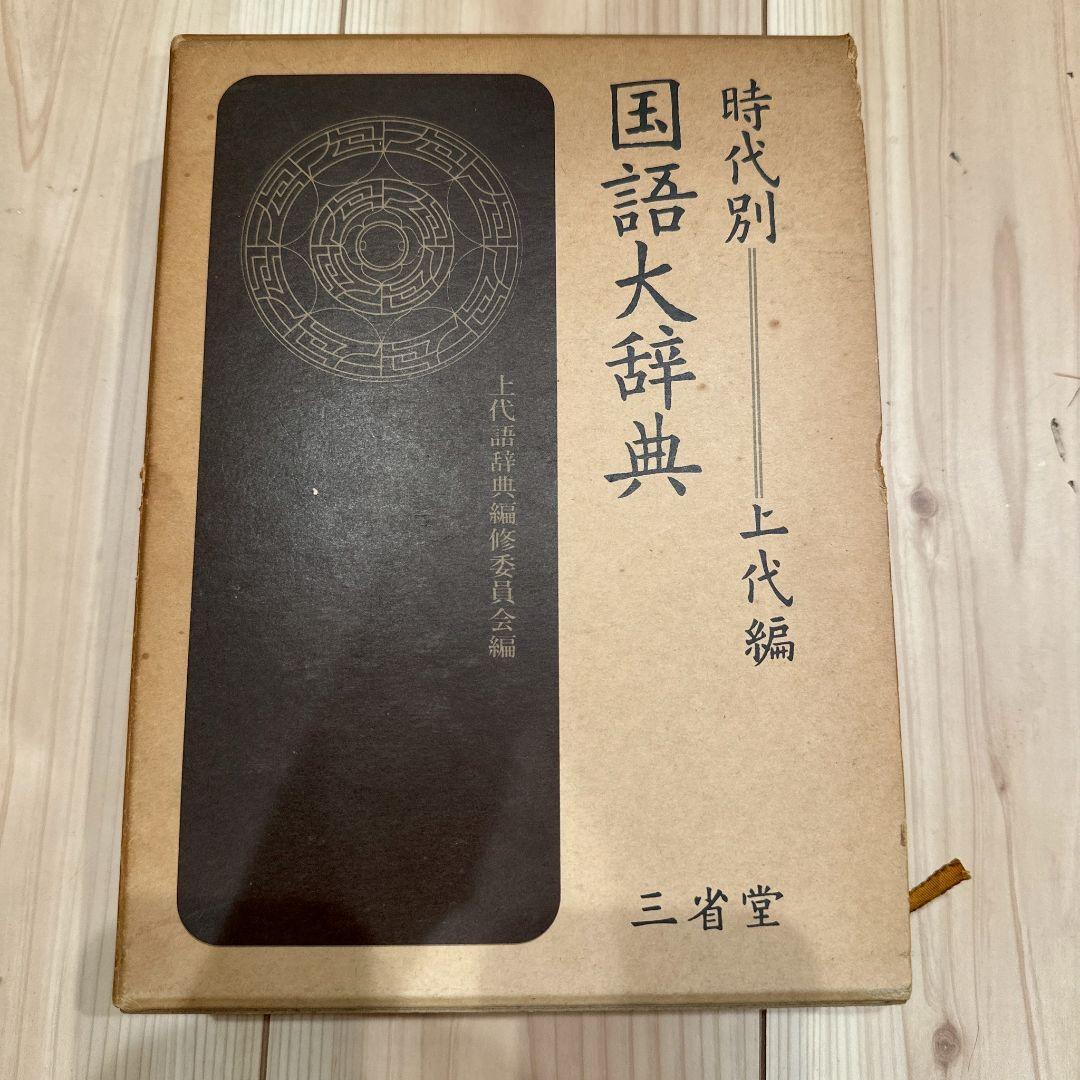 時代別━━上代編
国語大辞典
上代語辞典編修委員会編
三省堂